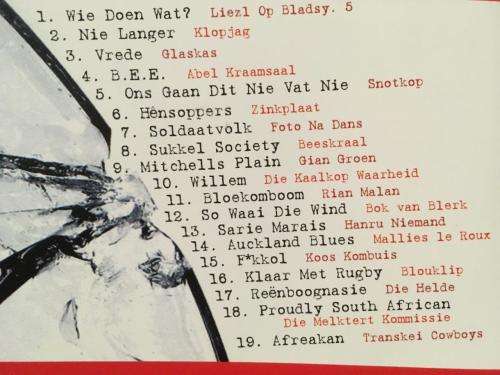 1. Wie Doen Wat? Liezl Op Bladsy. 5
2. Nie Langer Klopjag
3. Vrede Glaskas
4. B.E.E. Abel Kraamsaal
5. Ons Gaan Dit Nie Vat Nie Snotkop
6. Hênsoppers Zinkplaat
7. Soldaatvolk Foto Na Dans
8. Sukkel Society Beeskraal
9. Mitchells Plain Gian Groen
10. Willem Die Kaalkop Waarheid
11. Bloekomboom Rian Malan
12. So Waai Die Wind Bok van Blerk
13. Sarie Marais Hanru Niemand
14. Auckland Blues Mallies le Roux
15. F*kkol Koos Kombuis
16. Klaar Met Rugby Blouklip
17. Reënboognasie Die Helde
18. Proudly South African
Die Melktert Kommissie
19. Afreakan Transkei Cowboys